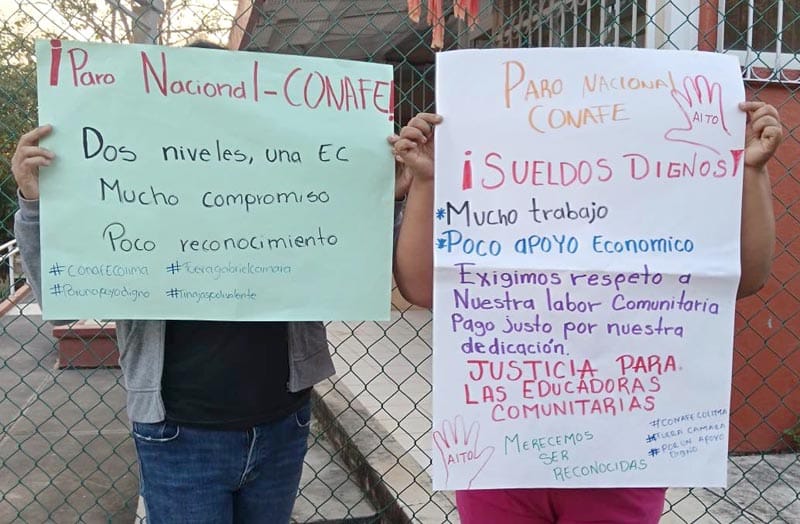 ¡Paro Nacional-CONAFE!
Dos niveles, una EC
Mucho compromiso
Poco reconocimiento
#ConafeColima #Fueragabrielcamara
#Porunapoyodigno #Tinajaspolivalente
PARO NACIONAL
CONAFE
ALTO
¡SUELDOS DIGNOS!
*Mucho trabajo
*Poco apoyo Economico
Exigimos respeto a
Nuestra labor Comunitaria
Pago justo por nuestra
dedicación.
JUSTICIA PARA
LAS EDUCADORAS
COMUNITARIAS
ALTO
MERECEMOS
SER
RECONOCIDAS
#CONAFECOLIMA
#FUERA CAMARA
#POR UN APOYO
DIGNO